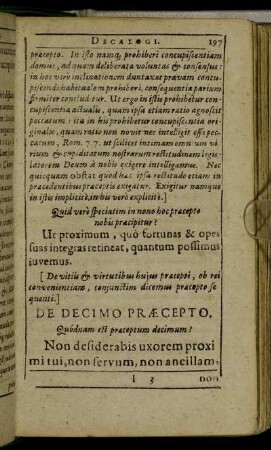 DECALOGI. 197
præcepto. In isto namq; prohiberi concupiscentiam
damus, ad quam deliberata voluntas & consensus:
in hoc verò inclinationem duntaxat pravam concu-
piscendi habitualem prohiberi, consequentia parium
firmiter concluditur. Ut ergo in istis prohibetur con-
cupiscentia actualis, quam ipsa etiam ratio agnoscit
peccatum: ita in his prohibetur concupiscentia ori
ginalis, quam ratio non novit nec intelligit esse pec-
catum, Rom. 7. 7. ut scilicet intimam omnium vi-
rium & cupiditatum nostrarum rectitudinem legis-
latorem Deum à nobis exigere intelligamus. Nec
quicquam obstat quod hæc ipsa rectitudo etiam in
præcedentibus præceptis exigatur. Exigitur namque
in istis implicitè, in his verò explicitè.]
Quid verò speciatim in nono hoc præcepto
nobis præcipitur?
Ut proximum, quò fortunas & opes
suas integras retineat, quantum possimus
juvemus.
[De vitiis & virtutibus hujus præcepti, ob rei
convenientiam, conjunctim dicemus præcepto se
quenti.]
DE DECIMO PRÆCEPTO.
Quódnam est præceptum decimum?
Non desiderabis uxorem proxi
mi tui, non servum, non ancillam,
i 3 non